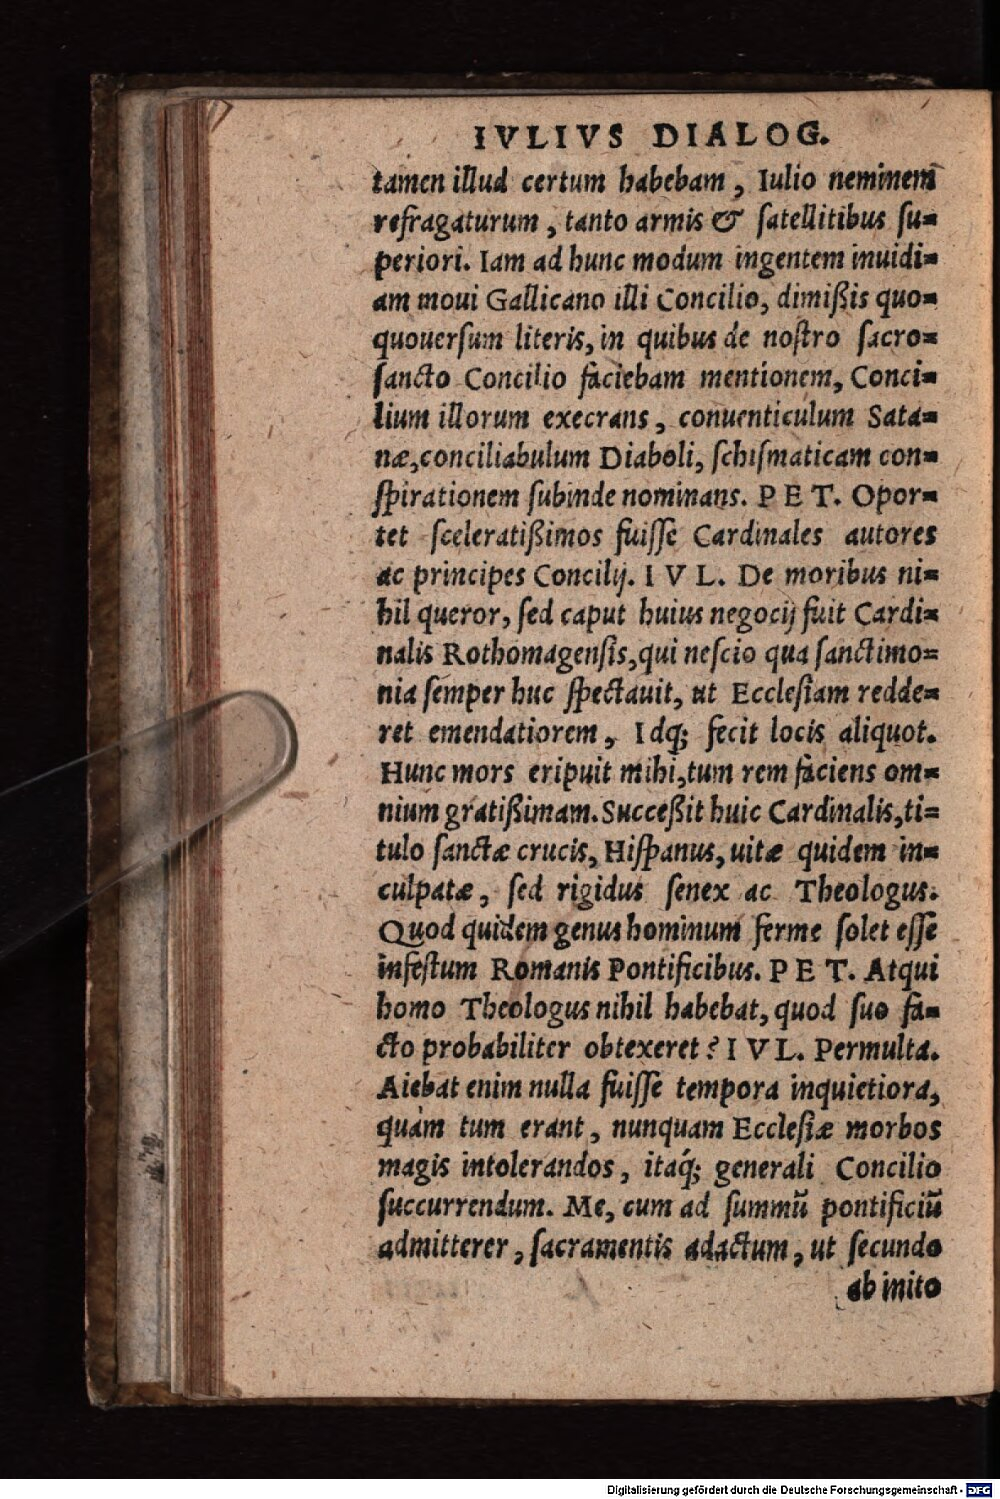 IVLIVS DIALOG.
tamen illud certum habebam, Iulio neminem
refragaturum, tanto armis & ſatellitibus ſu=
periori. Iam ad hunc modum ingentem inuidi=
am moui Gallicano illi Concilio, dimißis quo=
quouerſum literis, in quibus de noſtro ſacro=
ſancto Concilio faciebam mentionem, Conci=
lium illorum execrans, conuenticulum Sata=
næ, conciliabulum Diaboli, ſchiſmaticam con=
ſpirationem ſubinde nominans. P E T. Opor=
tet ſceleratißimos fuiſſe Cardinales autores
ac principes Concilij. I V L. De moribus ni=
hil queror, ſed caput huius negocij fuit Cardi=
nalis Rothomagenſis, qui neſcio qua ſanctimo=
nia ſemper huc ſpectauit, ut Eccleſiam redde=
ret emendatiorem, Idq; fecit locis aliquot.
Hunc mors eripuit mihi, tum rem faciens om=
nium gratißimam. Succeßit huic Cardinalis, ti=
tulo ſanctæ crucis, Hiſpanus, uitæ quidem in=
culpatæ, ſed rigidus ſenex ac Theologus.
Quod quidem genus hominum ferme ſolet eſſe
infeſtum Romanis Pontificibus. P E T. Atqui
homo Theologus nihil habebat, quod ſuo fa=
cto probabiliter obtexeret? I V L. Permulta.
Aiebat enim nulla fuiſſe tempora inquietiora,
quàm tum erant, nunquam Eccleſiæ morbos
magis intolerandos, itaq́; generali Concilio
ſuccurrendum. Me, cum ad ſummũ pontificiũ
admitterer, ſacramentis adactum, ut ſecundo
ab inito
Digitalisierung gefördert durch die Deutsche Forschungsgemeinschaft - DFG